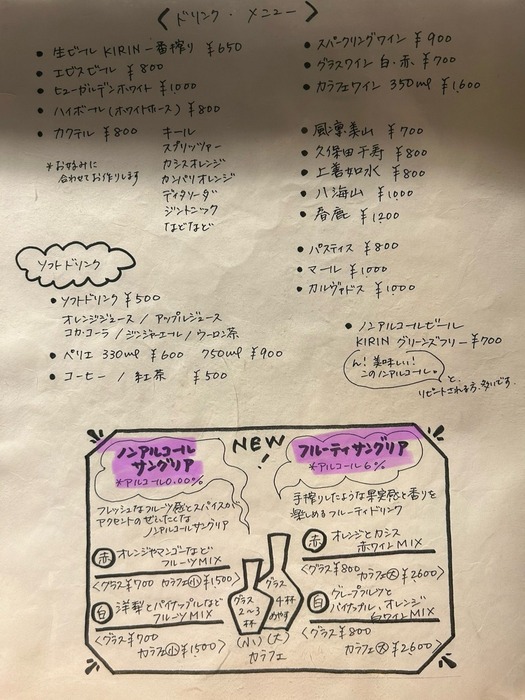 〈ドリンク・メニュー〉
• 生ビール KIRIN 一番搾り ¥650
• エビスビール ¥800
• ヒューガルデンホワイト ¥1000
• ハイボール (ホワイトホース) ¥800
• カクテル ¥800
キール
スプリッツァー
カシスオレンジ
カンパリオレンジ
ディタリーダ
ジントニック
などなど
*お好みに
合わせてお作りします
• スパークリングワイン ¥900
• グラスワイン 白・赤 ¥700
• カラフェワイン 350ml ¥1,600
• 風凛美山 ¥700
• 久保田 千寿 ¥800
• 上善如水 ¥800
• 八海山 ¥1000
• 春鹿 ¥1200
• パスティス ¥800
• マール ¥1,000
• カルヴァドス ¥1,000
ソフトドリンク
• ソフトドリンク ¥500
オレンジジュース / アップルジュース
コカ・コーラ / ジンジャーエール / ウーロン茶
• ペリエ 330ml ¥600 750ml ¥900
• コーヒー / 紅茶 ¥500
• ノンアルコールビール
KIRIN グリーンズフリー ¥700
ん!美味しい!
このノンアルコール。
と、
リピートされる方、多いです。
NEW!
ノンアルコール
サングリア
*アルコール0.00%
フレッシュなフルーツ感とスパイスが
アクセントのぜいたくな
ノンアルコールサングリア
赤 オレンジやマンゴーなど
フルーツMIX
〈グラス¥700 カラフェ小¥1500〉
白 洋梨とパイナップルなど
フルーツMIX
〈グラス¥700
カラフェ小¥1,500〉
フルーティサングリア
*アルコール6%
手搾りしたような果実感と香りを
楽しめるフルーティドリンク
赤 オレンジとカシス
赤ワインMIX
〈グラス¥800
カラフェ大¥2600〉
白 グレープフルーツと
パイナップル、オレンジ
白ワインMIX
〈グラス¥800
カラフェ大¥2,600〉
グラス
2~3
杯
グラス
4杯
めやす
(小) (大)
カラフェ